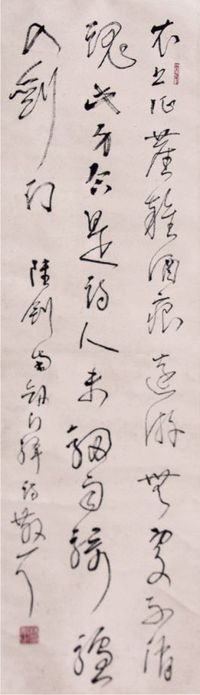 衣上征塵雜酒痕遠游無處不消
魂此身合是詩人未細雨騎驢
入劍門
陸劍南劍門詩散耳